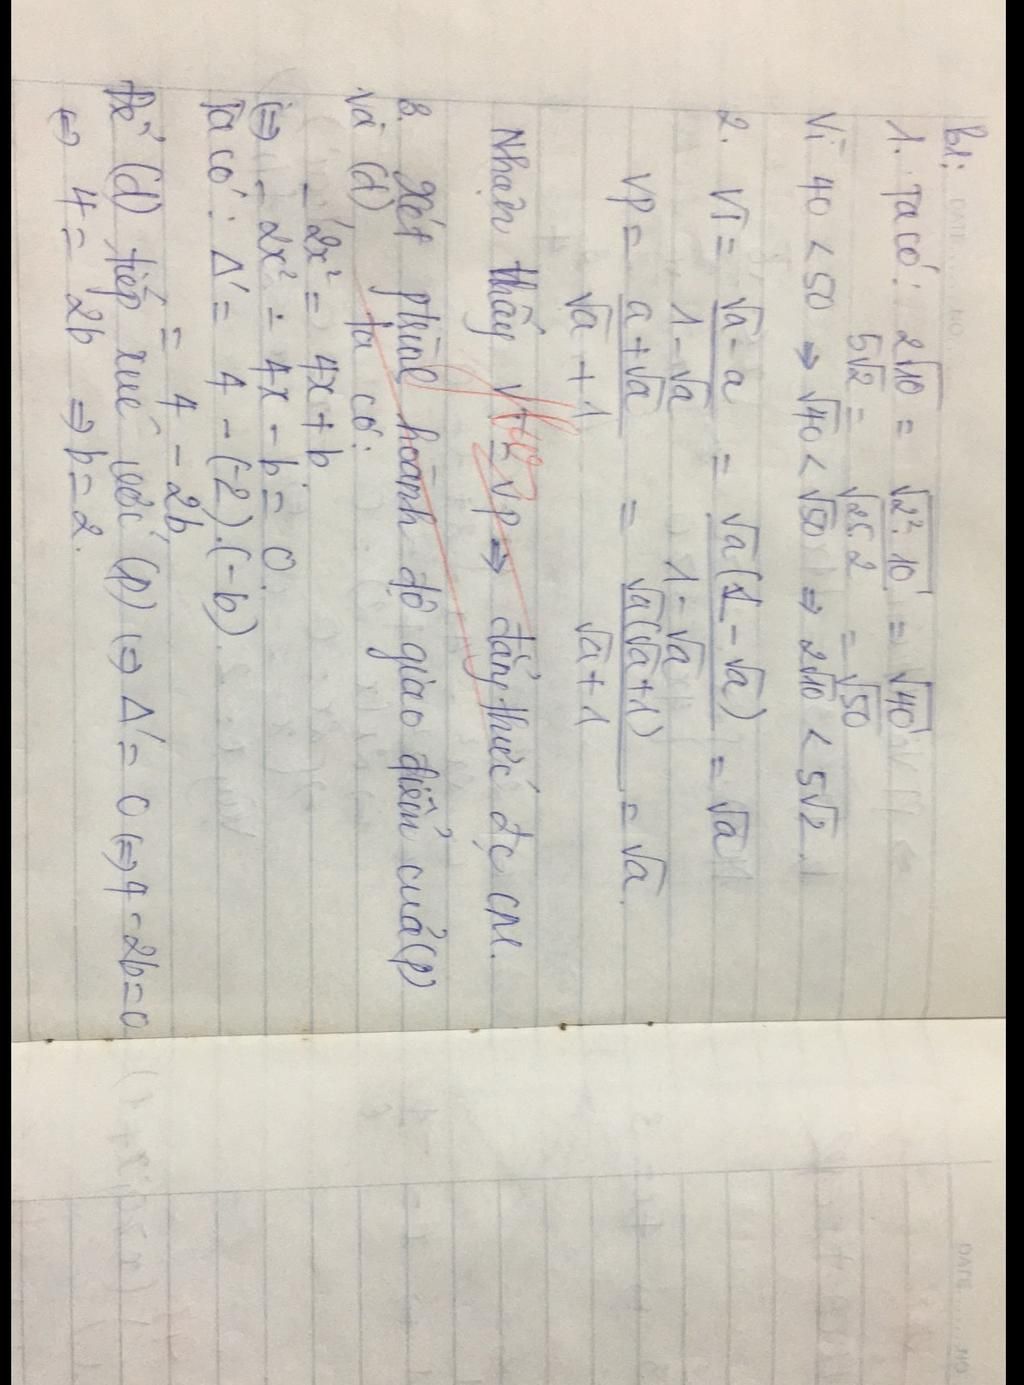 B1:
1. Ta có: 2√10 = √2².10 = √40
5√2 = √25.2 = √50
Vì 40 < 50 ⇒ √40 < √50 ⇒ 2√10 < 5√2.
2. VT = (√a - a)/(1 - √a) = √a(1 - √a)/(1 - √a) = √a
VP = (a + √a)/(√a + 1) = √a(√a + 1)/(√a + 1) = √a.
Nhận thấy VT = VP ⇒ đẳng thức đc CM.
3. Xét phình hoành độ giao điểm của (P)
và (d) ta có:
- 2x² = 4x + b
(⇒ - 2x² - 4x - b = 0.
Ta có: Δ' = 4 - (-2).(-b)
= 4 - 2b
Để (d) tiếp xúc với (P) (⇒ Δ' = 0 (⇒ 4 - 2b = 0
(⇒ 4 = 2b ⇒ b = 2.
DATE NO.
DATE NO